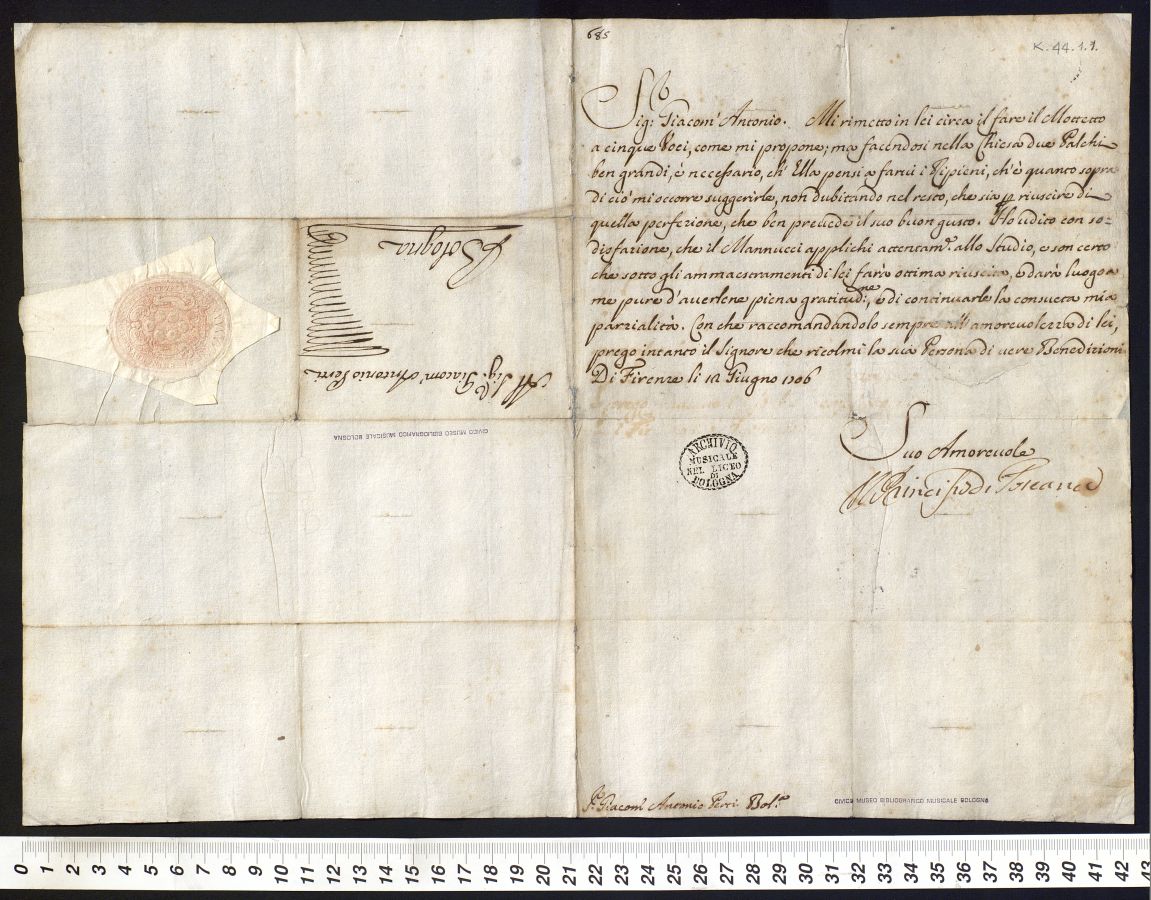 685
K. 44. 1. 1.
Sig: Giacom' Antonio. Mi rimetto in lei circa il fare il Mottetto
a cinque Voci, come mi propone; ma facendosi nella Chiesa due Palchi
ben grandi, è necessario, ch' Ella pensi a farui i Ripieni, ch'è quanto sopra
di ciò mi occorre suggerirle, non dubitando nel resto, che sia p riuscire di
quella perfezione, che ben preuede il suo buon gusto. Ho udito con so-
disfazione, che il Mannucci applichi attentam.e allo Studio, e son certo
che sotto gli ammaestramenti di lei farà ottima riuscita, e darà luogo a
me pure d'auerlene piena gratitud.ne, e di continuarle la consueta mia
parzialità. Con che raccomandandolo sempre all' amoreuolezza di lei,
prego intanto il Signore che ricolmi la sua Persona di uere Benedizioni
Di Firenze li 12 Giugno 1706
Suo Amoreuole
Il Principe di Toscana
ARCHIVIO
MUSICALE
NEL LICEO
DI
BOLOGNA
S.r Giacom' Antonio Perti Bol.a
CIVICO MUSEO BIBLIOGRAFICO MUSICALE BOLOGNA
Al Sig.r Giacom' Antonio Perti
Bologna
CIVICO MUSEO BIBLIOGRAFICO MUSICALE BOLOGNA
0 1 2 3 4 5 6 7 8 9 10 11 12 13 14 15 16 17 18 19 20 21 22 23 24 25 26 27 28 29 30 31 32 33 34 35 36 37 38 39 40 41 42 43